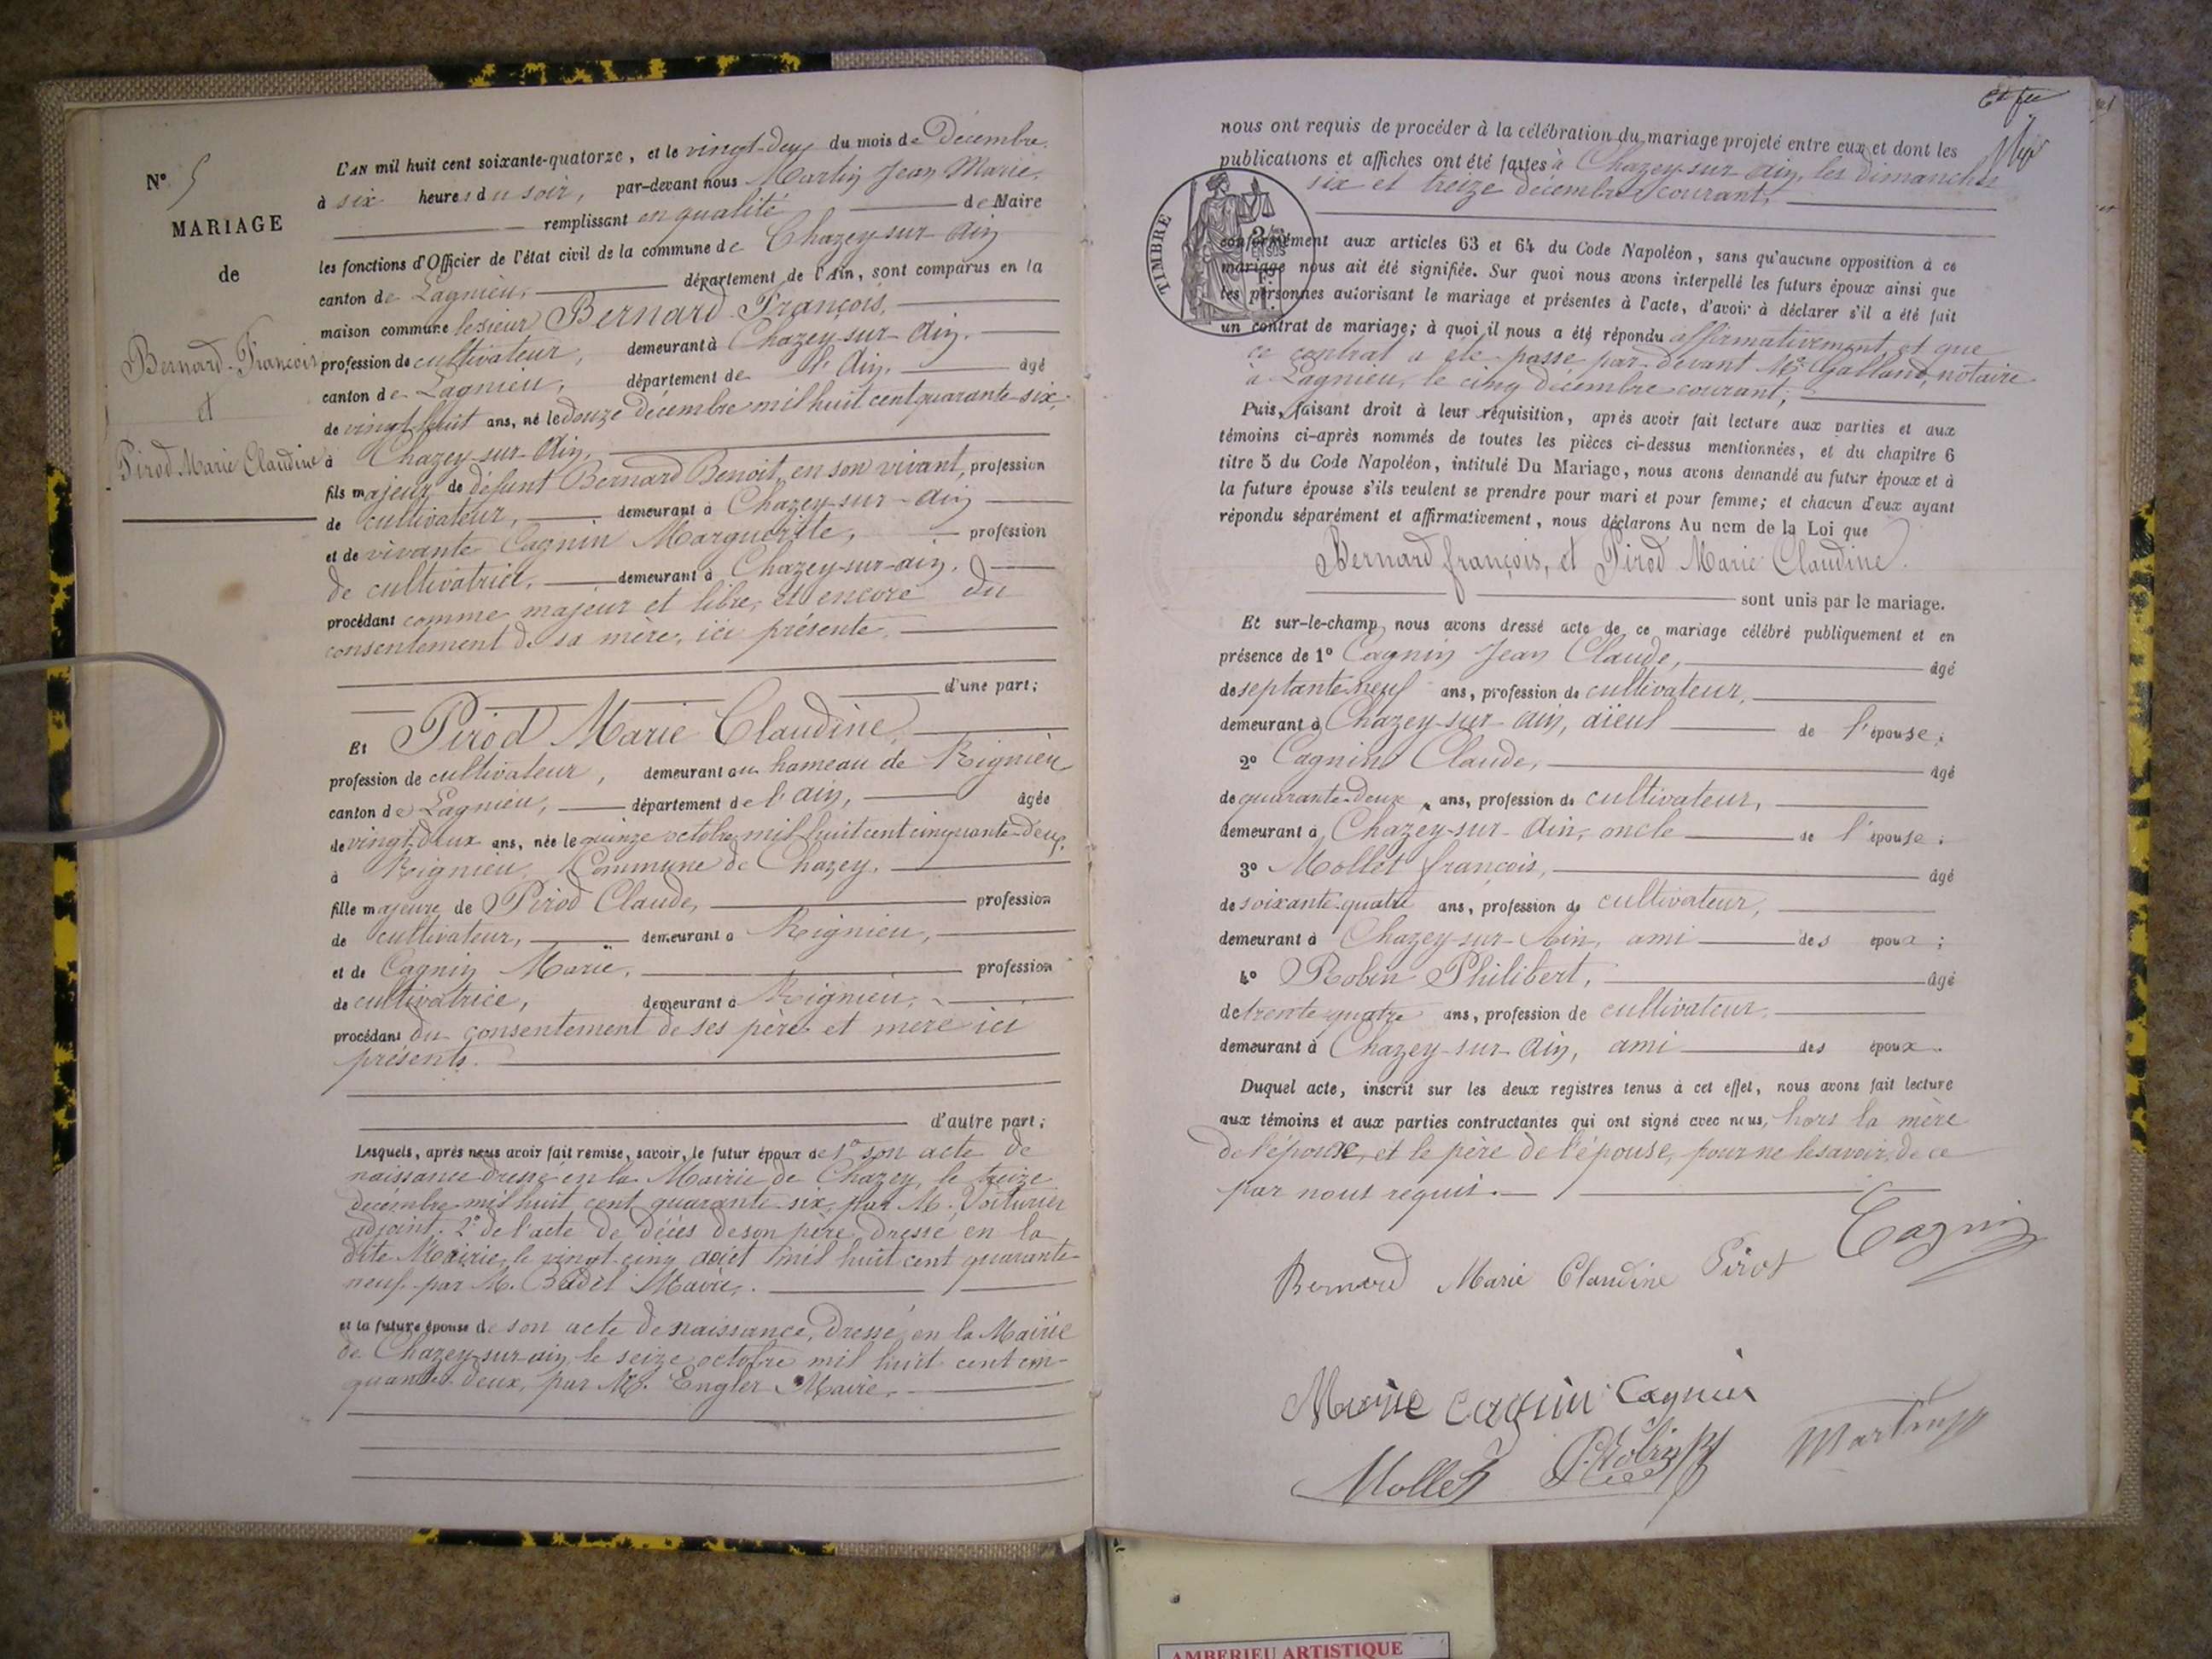 N° 5
MARIAGE
de
Bernard François
et
Pirod Marie Claudine
L'AN mil huit cent soixante-quatorze, et le vingt-deux du mois de Décembre,
à six heures du soir, par-devant nous Martin Jean Marie,
remplissant en qualité de Maire
les fonctions d'Officier de l'état civil de la commune de Chazey-sur-Ain
canton de Lagnieu, département de l'Ain, sont comparus en la
maison commune le sieur Bernard François,
profession de cultivateur, demeurant à Chazey-sur-Ain,
canton de Lagnieu, département de l'Ain, âgé
de vingt huit ans, né le douze décembre mil huit cent quarante-six,
à Chazey-sur-Ain,
fils majeur de défunt Bernard Benoit, en son vivant, profession
de cultivateur, demeurant à Chazey-sur-Ain
et de vivante Cagnin Marguerite, profession
de cultivatrice, demeurant à Chazey-sur-ain,
procédant comme majeur et libre, et encore du
consentement de sa mère, ici présente,
d'une part;
Et Pirod Marie Claudine,
profession de cultivateur, demeurant au hameau de Rignieu
canton de Lagnieu, département de l'ain, âgée
de vingt-deux ans, née le quinze octobre mil huit cent cinquante-deux,
à Rignieu, Commune de Chazey,
fille majeure de Pirod Claude, profession
de cultivateur, demeurant à Rignieu,
et de Cagnin Marie, profession
de cultivatrice, demeurant à Rignieu,
procédant du consentement de ses père et mère ici
présents.
d'autre part;
Lesquels, après nous avoir fait remise, savoir, le futur époux de 1° son acte de
naissance dressé en la Mairie de Chazey, le treize
décembre mil huit cent quarante-six, par M. Voiturier
adjoint. 2° de l'acte de décès de son père, dressé en la
dite Mairie, le vingt-cinq août mil huit cent quarante-
neuf par M. Badel Maire,
et la future épouse de son acte de naissance, dressé en la Mairie
de Chazey-sur-ain le seize octobre mil huit cent cin-
quante-deux, par M. Engler Maire,
nous ont requis de procéder à la célébration du mariage projeté entre eux et dont les
publications et affiches ont été faites à Chazey-sur-ain, les dimanches
six et treize décembre courant,
TIMBRE
conformément aux articles 63 et 64 du Code Napoléon, sans qu'aucune opposition à ce
mariage nous ait été signifiée. Sur quoi nous avons interpellé les futurs époux ainsi que
les personnes autorisant le mariage et présentes à l'acte, d'avoir à déclarer s'il a été fait
un contrat de mariage; à quoi il nous a été répondu affirmativement et que
ce contrat a été passé par-devant Me Galland, notaire
à Lagnieu, le cinq décembre courant,
Puis, faisant droit à leur réquisition, après avoir fait lecture aux parties et aux
témoins ci-après nommés de toutes les pièces ci-dessus mentionnées, et du chapitre 6
titre 5 du Code Napoléon, intitulé Du Mariage, nous avons demandé au futur époux et à
la future épouse s'ils veulent se prendre pour mari et pour femme; et chacun d'eux ayant
répondu séparément et affirmativement, nous déclarons Au nom de la Loi que
Bernard françois, et Pirod Marie Claudine.
sont unis par le mariage.
Et sur-le-champ nous avons dressé acte de ce mariage célébré publiquement et en
présence de 1° Cagnin Jean Claude, âgé
de septante-neuf ans, profession de cultivateur,
demeurant à Chazey-sur-ain, aïeul de l'épouse;
2° Cagnin Claude, âgé
de quarante-deux ans, profession de cultivateur,
demeurant à Chazey-sur-Ain, oncle de l'épouse;
3° Mollet françois, âgé
de soixante-quatre ans, profession de cultivateur,
demeurant à Chazey-sur-Ain, ami des époux;
4° Robin Philibert, âgé
de trente-quatre ans, profession de cultivateur,
demeurant à Chazey-sur-Ain, ami des époux.
Duquel acte, inscrit sur les deux registres tenus à cet effet, nous avons fait lecture
aux témoins et aux parties contractantes qui ont signé avec nous, hors la mère
de l'époux, et le père de l'épouse, pour ne le savoir, de ce
par nous requis.
Bernard Marie Claudine Pirod Cagnin
Marie Cagnin Cagnin
Mollet P. Robin Martin
AMBERIEU ARTISTIQUE